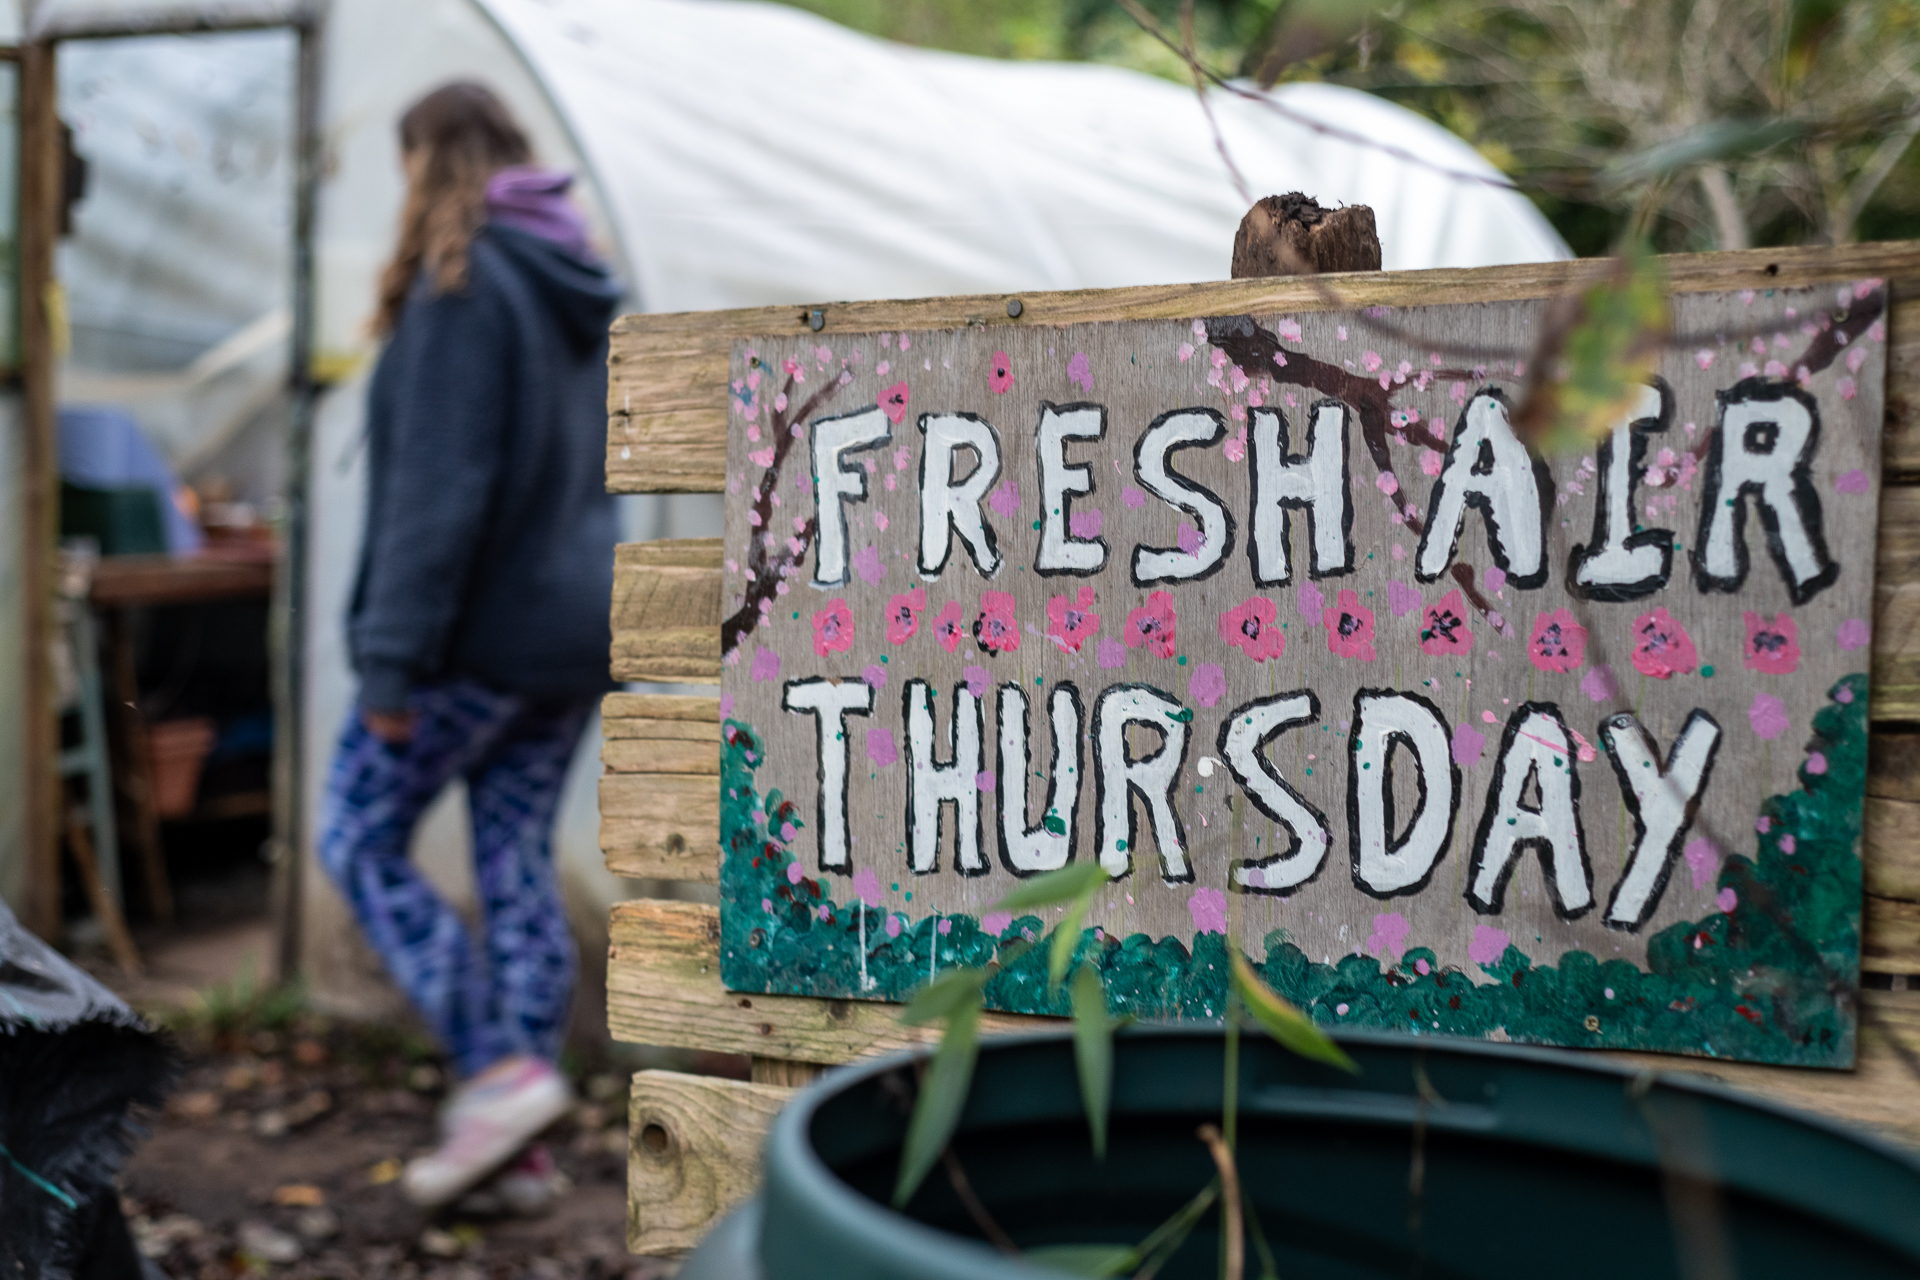 FRESH AIR
THURSDAY